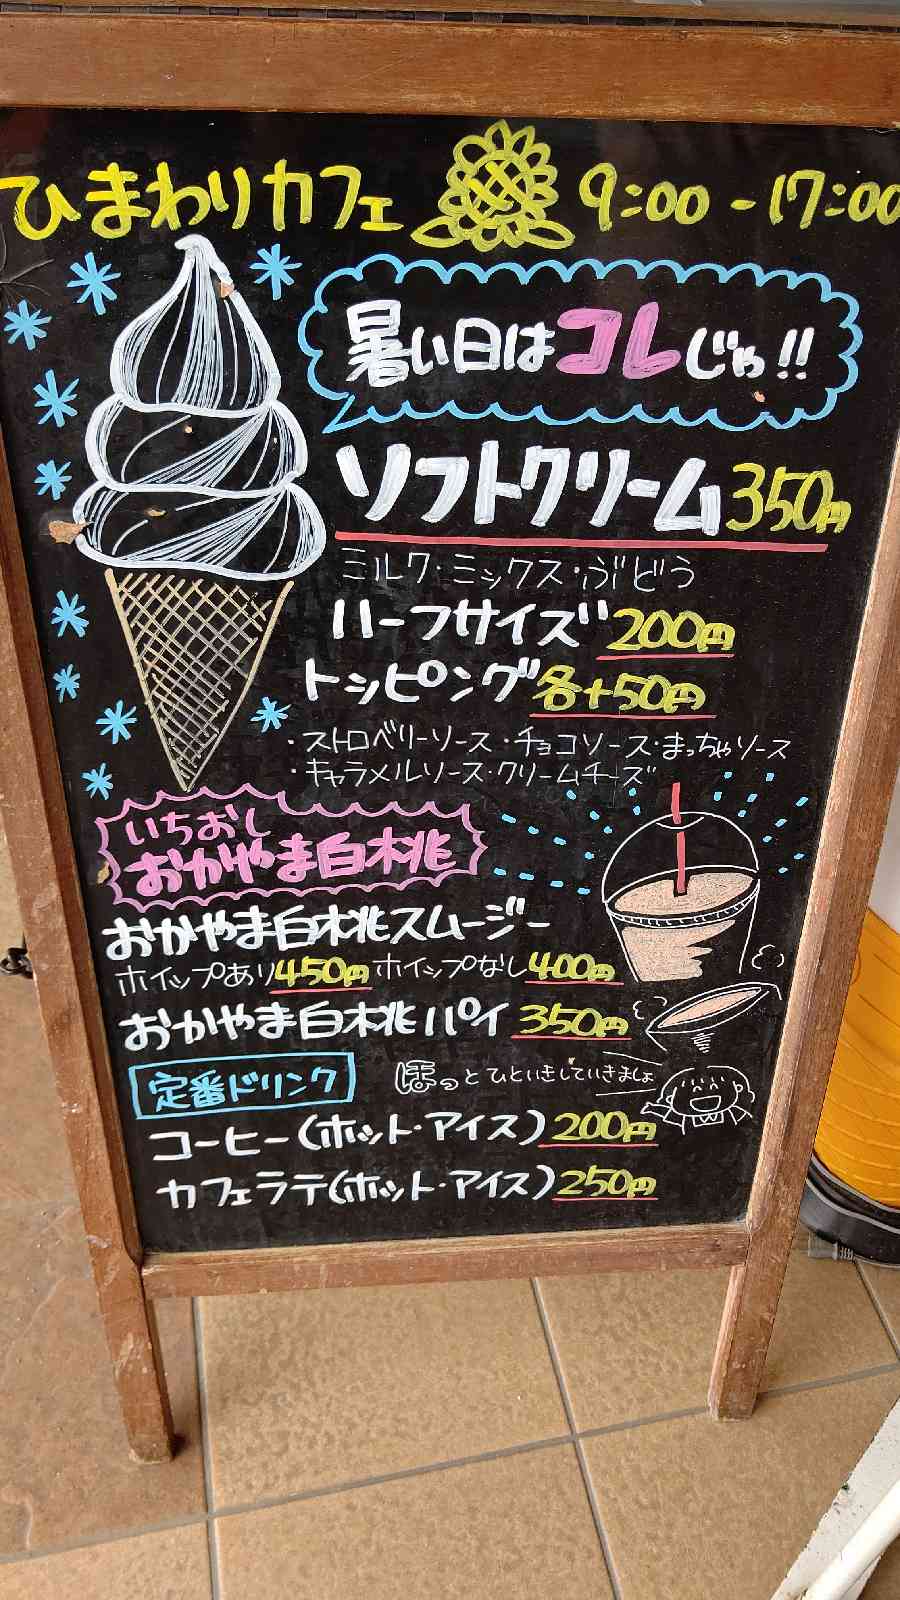 ひまわりカフェ 9:00-17:00
暑い日はコレじゃ!!
ソフトクリーム 350円
ミルク・ミックス・ぶどう
ハーフサイズ 200円
トッピング各+50円
・ストロベリーソース・チョコソース・まっちゃソース
・キャラメルソース・クリームチーズ
いちおし
おかやま白桃
おかやま白桃スムージー
ホイップあり450円 ホイップなし400円
おかやま白桃パイ 350円
定番ドリンク
ほっとひといきしていきましょ
コーヒー(ホット・アイス)200円
カフェラテ(ホット・アイス)250円